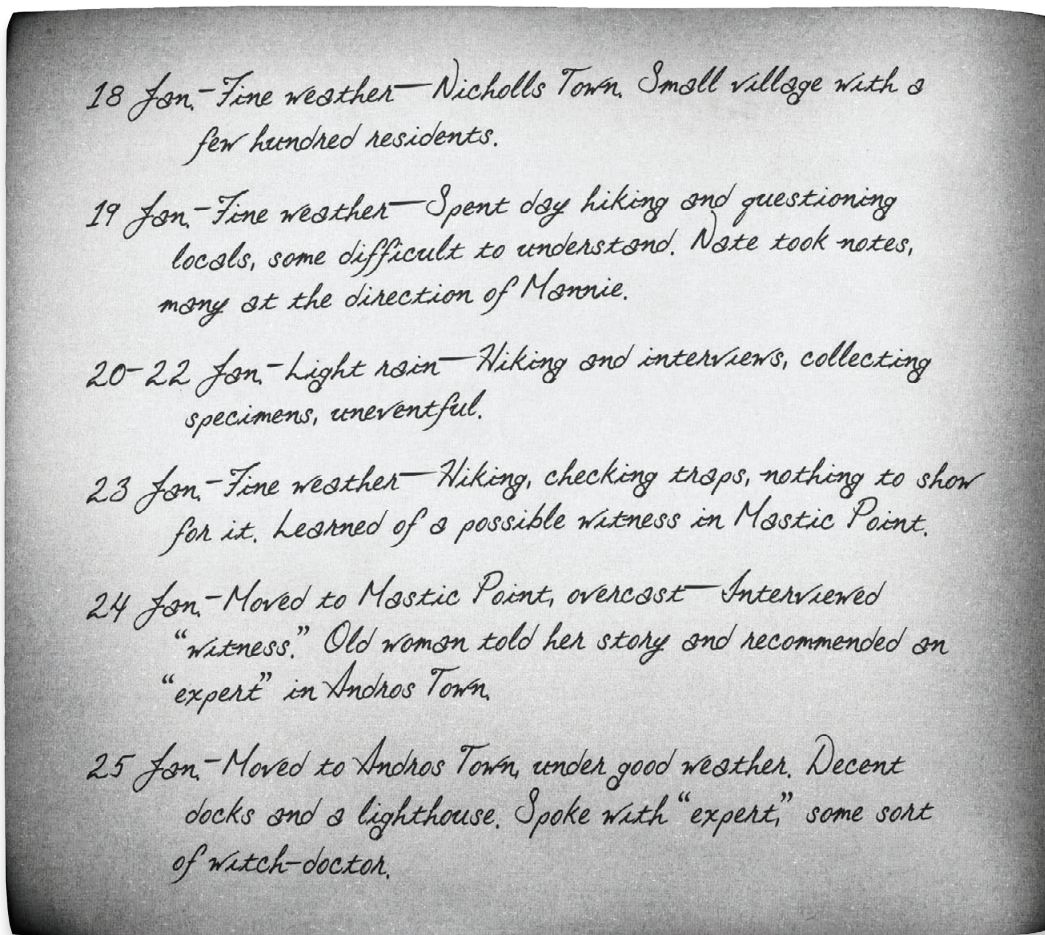 18 Jan.–Fine weather—Nicholls Town. Small village with a
few hundred residents.
19 Jan.–Fine weather—Spent day hiking and questioning
locals, some difficult to understand. Nate took notes,
many at the direction of Mannie.
20–22 Jan.–Light rain—Hiking and interviews, collecting
specimens, uneventful.
23 Jan.–Fine weather—Hiking, checking traps, nothing to show
for it. Learned of a possible witness in Mastic Point.
24 Jan.–Moved to Mastic Point, overcast—Interviewed
“witness.” Old woman told her story and recommended an
“expert” in Andros Town.
25 Jan.–Moved to Andros Town, under good weather. Decent
docks and a lighthouse. Spoke with “expert,” some sort
of witch-doctor.